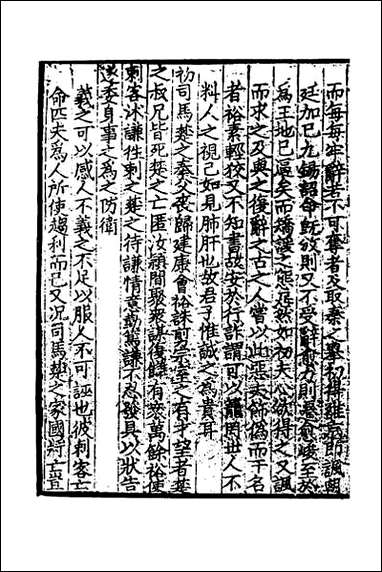 而每每牢辭若不可奪者及取秦之擧初捷雖京即諷朝
廷加己九錫詔命既放則又不受辭愈力則惎愈峻至於
為王地已逼矣而矯諼之態居然如初夫心欲得之又諷
而求之及與之復辭之古之人嘗以此惡夫飾偽而干名
者裕素輕狡又不知書故安於行詐謂可以籠罔世人不
料人之視己如見肺肝也故君子惟誠之為貴耳
初司馬楚之奉父喪歸建康會裕誅剪宗室之有才望者楚
之叔兄皆死楚之亡匿汝潁間聚衆謀復讎有衆萬餘裕使
刺客沐謙往刺之楚之待謙情意勤篤謙不忍發具以狀告
遂委身事之為之防衛
義之可以感人不義之不足以服人不可誣也彼刺客亡
命匹夫為人所使趨利而已又況司馬楚之家國將亡